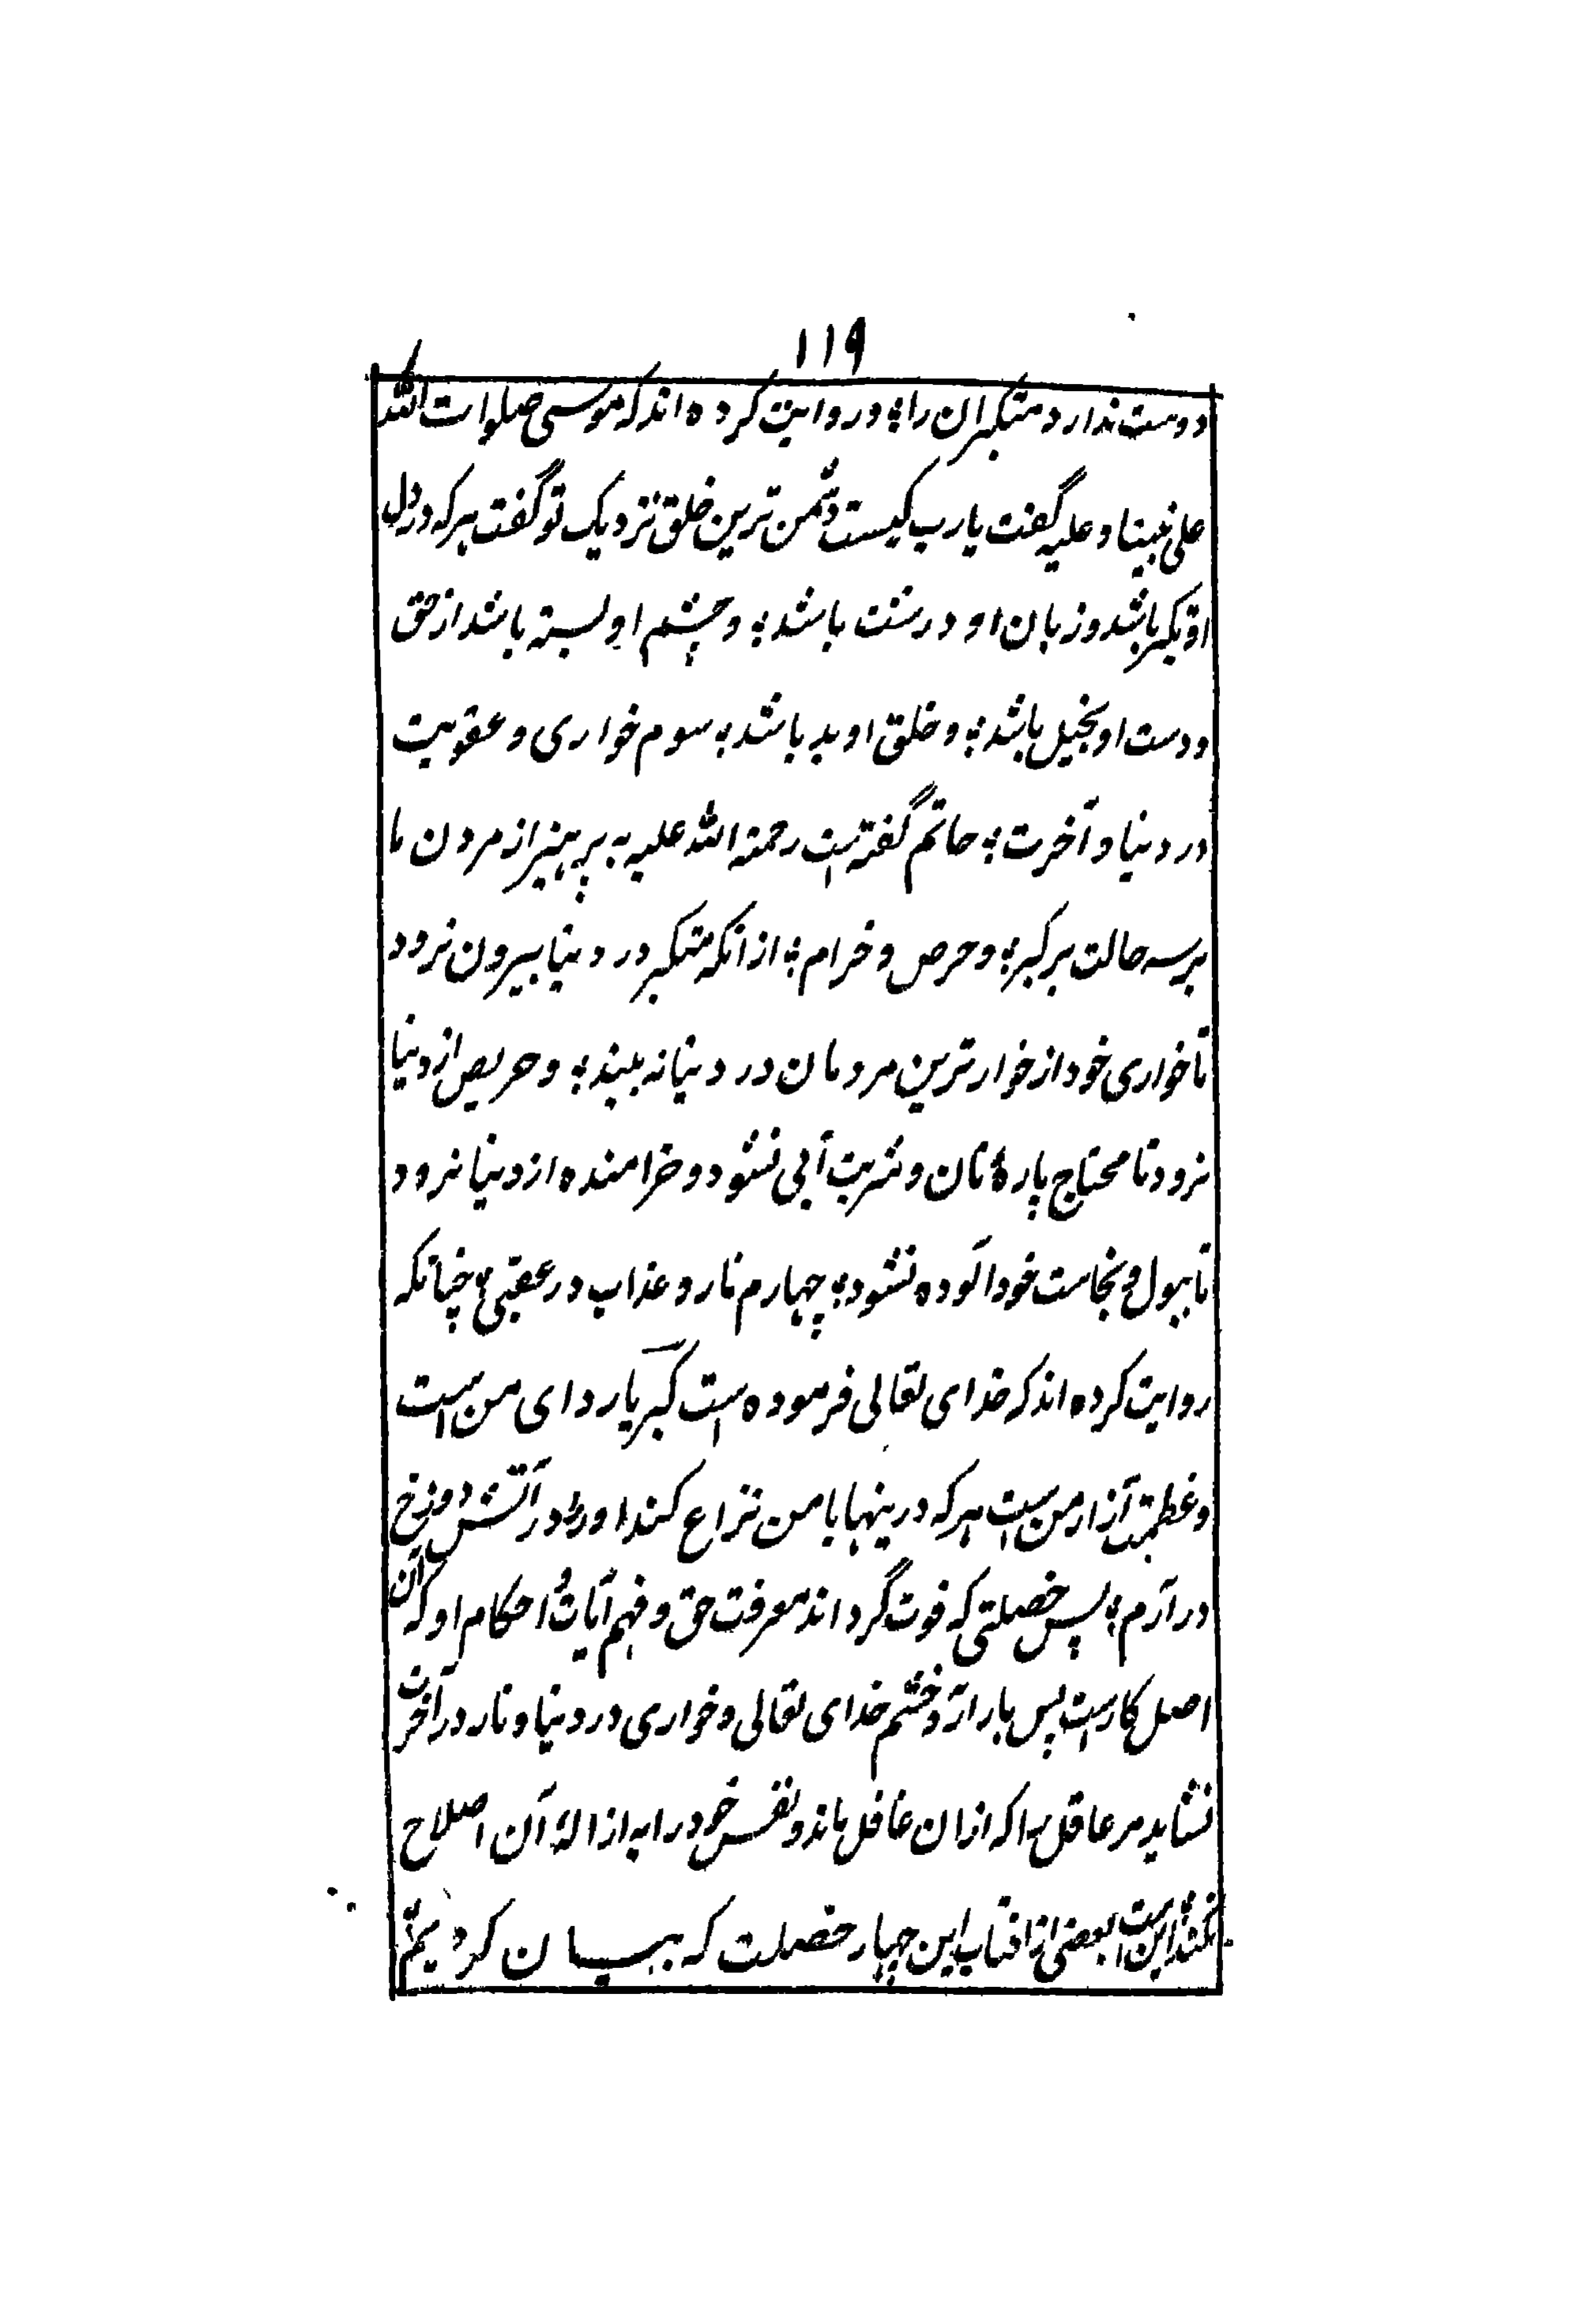 ۱۱۹
دوست ندارد متکبران را؛ و روایت کرده اند که موسی صلوات الله
علی نبینا و علیه گفت یارب کیست دشمن ترین خلق نزدیک تو گفت هر که در دل
او تکبر باشد و زبان او درشت باشد؛ و چشم او بسته باشد از حق
و دست او بخیل باشد؛ و خلق او بد باشد؛ سوم خواری و عقوبت
در دنیا و آخرت؛ حاتم گفته است رحمة الله علیه به پرهیز از مردن ما
بر سه حالت بر کبر؛ و حرص و خرام؛ از انکه متکبر در دنیا بیرون نرود
تا خواری خود از خوار ترین مردمان در دنیا نه بیند؛ و حریص از دنیا
نرود تا محتاج پارهٔ نان و شربت آبی نشود و خرامنده از دنیا نرود
تا ببول و نجاست خود آلوده نشود؛ چهارم نار و عذاب در عقبی؛ چنانکه
روایت کرده اند که خدای تعالی فرموده است کبریا ردای من است
و عظمت آزار من ست هر که درینها با من نزاع کند او را در آتش دوزخ
در آرم؛ پس خصلتی که فوت گرداند معرفت حق و فهم آیات و احکام او که آن
اصل کارست پس بار آرد و خشم خدای تعالی و خواری در دنیا و نار در آخرت
نشاید مر عاقل را که ازان غافل ماند و نفس خود را به ازالهٔ آن اصلاح
نکند این است بعضی از افتاب این چهار خصلت که بیان کردیم